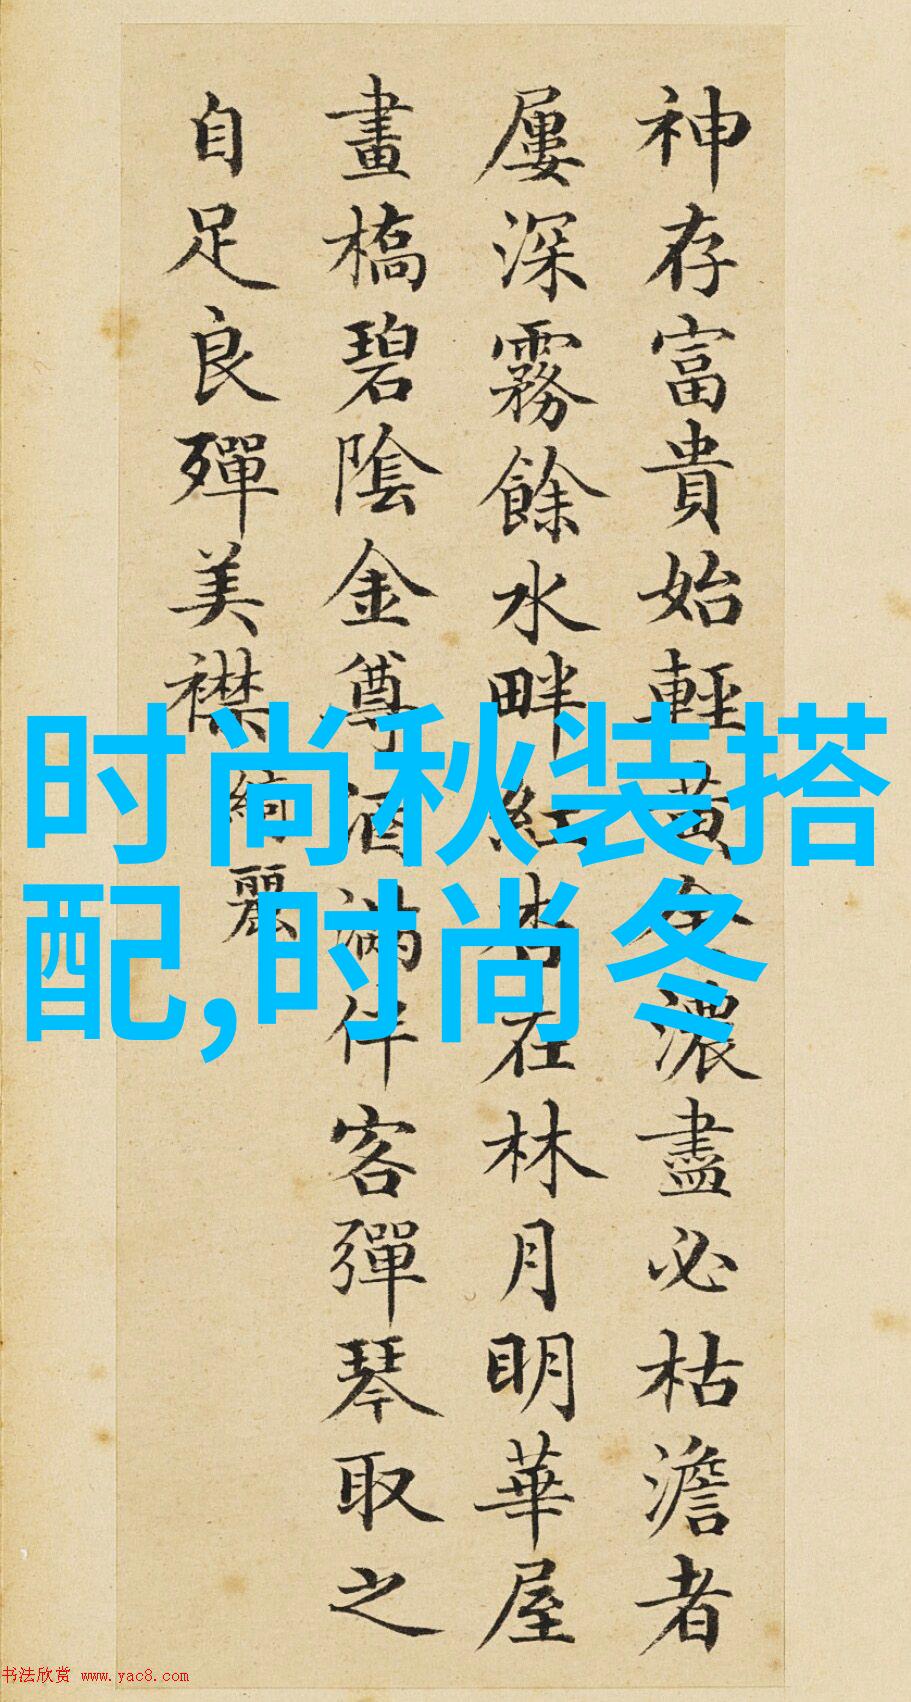 神存富貴始輕黃金濃盡必枯澹者
屢深霧餘水畔紅杏在林月明華屋
畫橋碧陰金尊酒滿伴客彈琴取之
自足良殫美襟綺麗
时尚秋装搭
配,时尚冬
书法欣赏 www.yac8.com